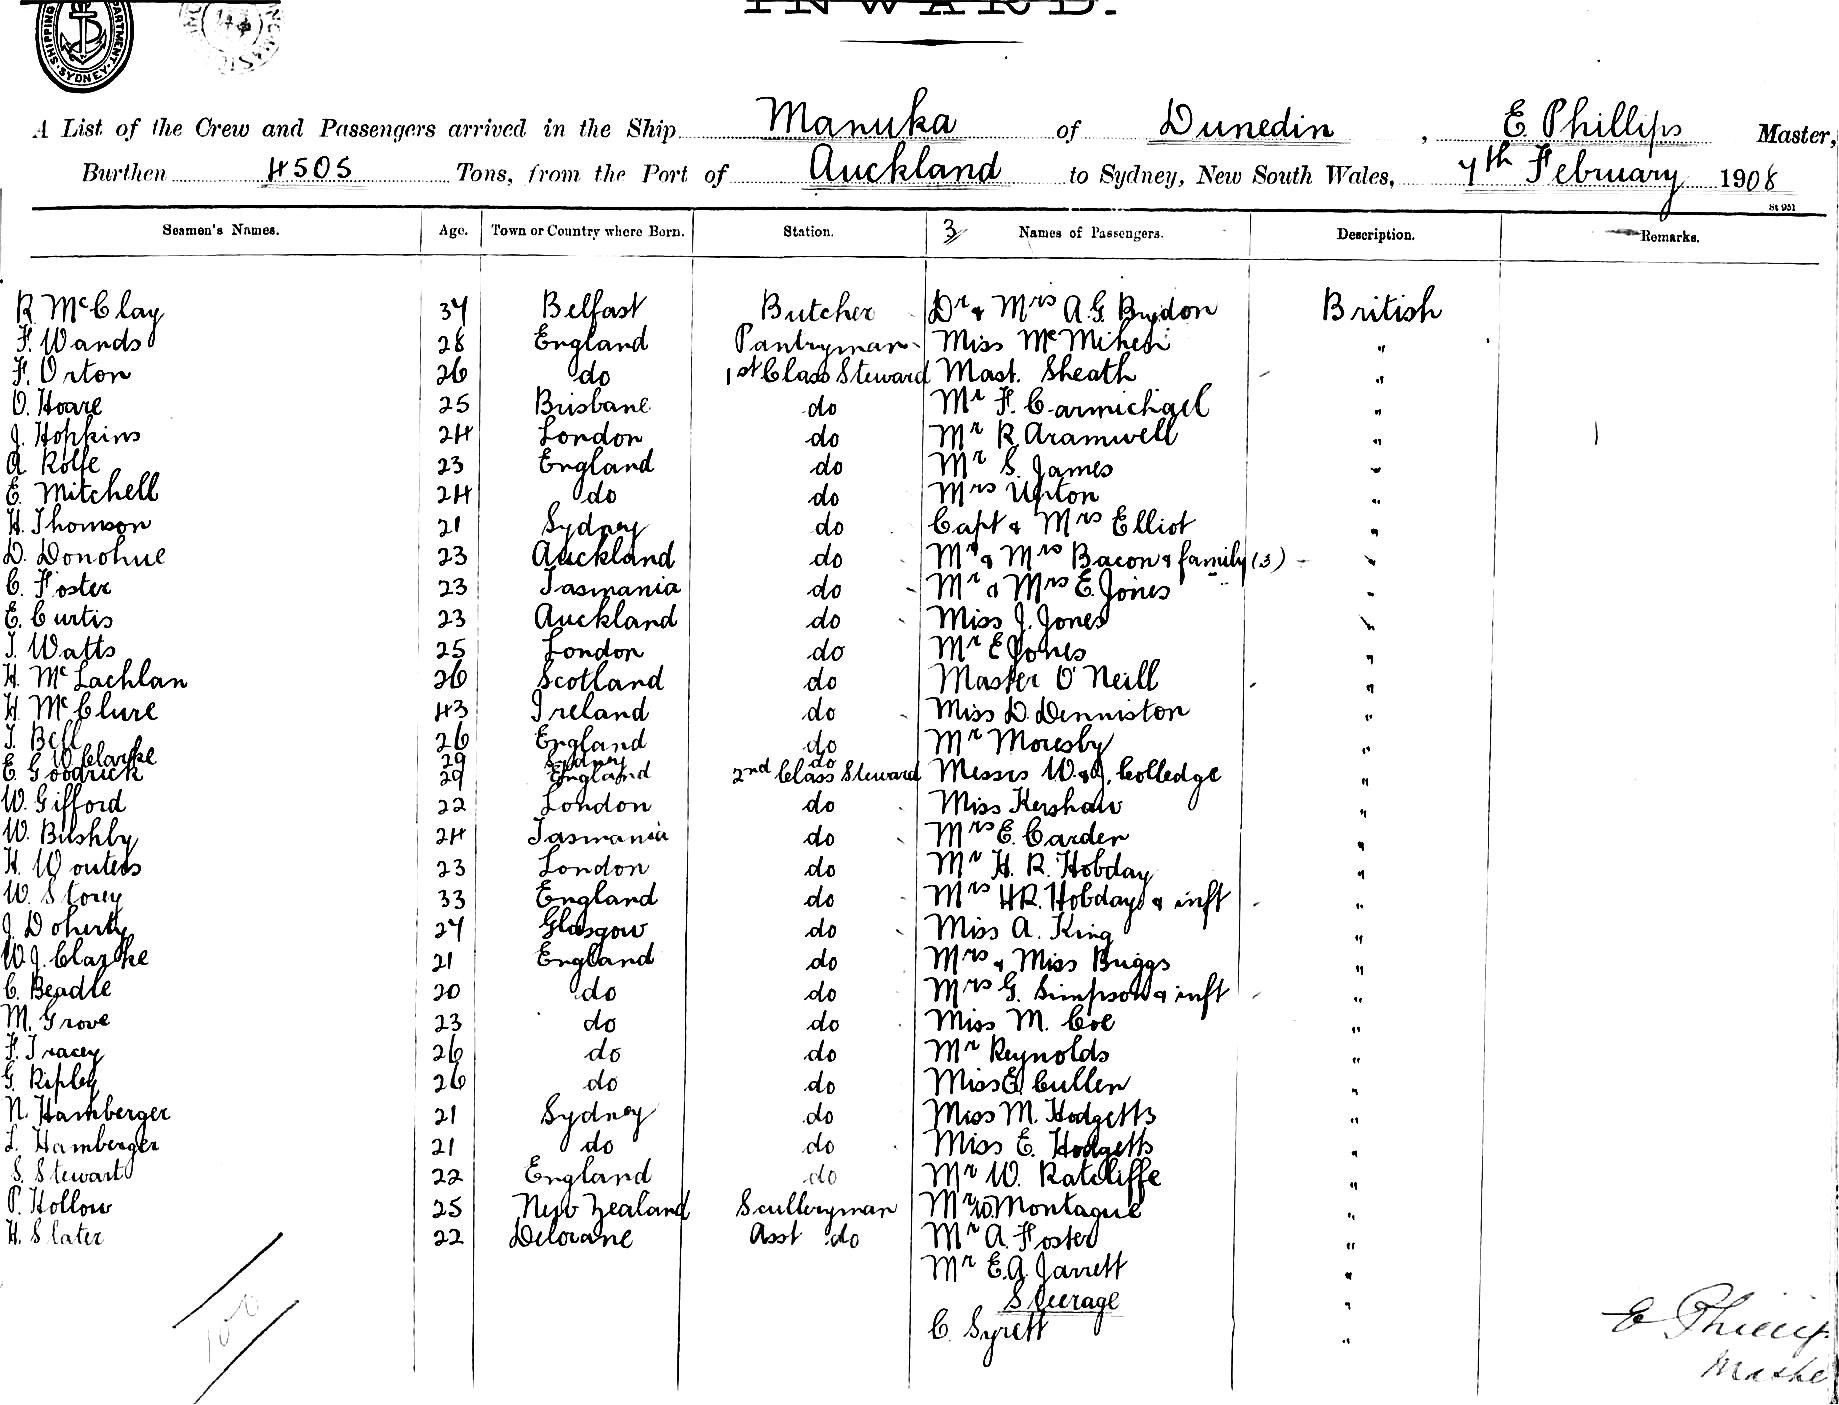 INWARD.
SHIPPING DEPARTMENT. SYDNEY.
A List of the Crew and Passengers arrived in the Ship Manuka of Dunedin, E. Phillips Master,
Burthen 4505 Tons, from the Port of Auckland to Sydney, New South Wales, 7th February 1908
St 951
Seamen's Names. Age. Town or Country where Born. Station. 3/ Names of Passengers. Description. Remarks.
R McClay 37 Belfast Butcher Dr & Mrs A.G. Brydon British
F. Wands 28 England Pantryman Miss McMiken "
F. Orton 26 do 1st Class Steward Mast. Sheath "
O. Hoare 25 Brisbane do Mr F. Carmichael "
J. Hopkins 24 London do Mr R Aramwell "
A Rolfe 23 England do Mr S. James "
E. Mitchell 24 do do Mrs Upton "
H. Thomson 21 Sydney do Capt & Mrs Elliot "
D. Donohue 23 Auckland do Mr & Mrs Bacon & family (3) "
C. Foster 23 Tasmania do Mr & Mrs E. Jones "
E. Curtis 23 Auckland do Miss J. Jones "
T. Watts 25 London do Mr E Jones "
H. McLachlan 26 Scotland do Master O'Neill "
H. McClure 43 Ireland do Miss D. Denniston "
T. Bell 26 England do Mr Moresby "
W Clarke 29 Sydney do
E. Goodrick 29 England 2nd Class Steward Messrs W. & J. Colledge "
W. Gifford 22 London do Miss Kershaw "
W. Bushby 24 Tasmania do Mrs E. Carder "
H. Wouters 23 London do Mr H. R. Hobday "
W. Storey 33 England do Mrs H.R. Hobday & inft "
J. Doherty 27 Glasgow do Miss A. King "
W.J. Clarke 21 England do Mrs & Miss Buggs "
C. Beadle 20 do do Mrs G. Simpson & inft "
M. Grove 23 do do Miss M. Coe "
F. Tracey 26 do do Mr Reynolds "
G. Ripley 26 do do Miss E. Cullen "
N. Hamberger 21 Sydney do Miss M. Hodgetts "
L. Hamberger 21 do do Miss E. Hodgetts "
S. Stewart 22 England do Mr W. Ratcliffe "
P. Hollow 25 New Zealand Sculleryman Montague "
H. Slater 22 Deloraine Asst do Mr A. Foster "
Mr E.A. Jarrett "
Steerage "
C. Syrett "
100
E Phillips
Master